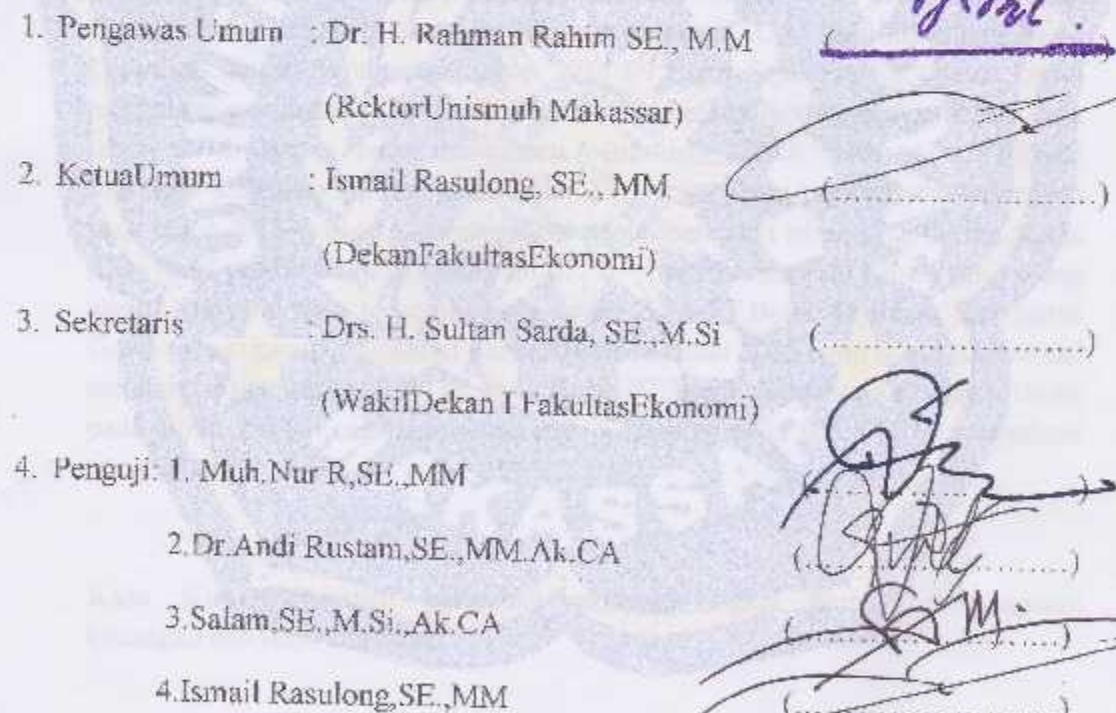 1. Pengawas Umum : Dr. H. Rahman Rahim SE., M.M (
(RektorUnismuh Makassar)
2. KetuaUmum : Ismail Rasulong, SE., MM (........................)
(DekanFakultasEkonomi)
3. Sekretaris : Drs. H. Sultan Sarda, SE.,M.Si (........................)
(WakilDekan I FakultasEkonomi)
4. Penguji: 1. Muh.Nur R,SE.,MM (........................)
2.Dr.Andi Rustam,SE.,MM.Ak.CA (........................)
3.Salam,SE.,M.Si.,Ak.CA (........................)
4.Ismail Rasulong,SE.,MM (........................)